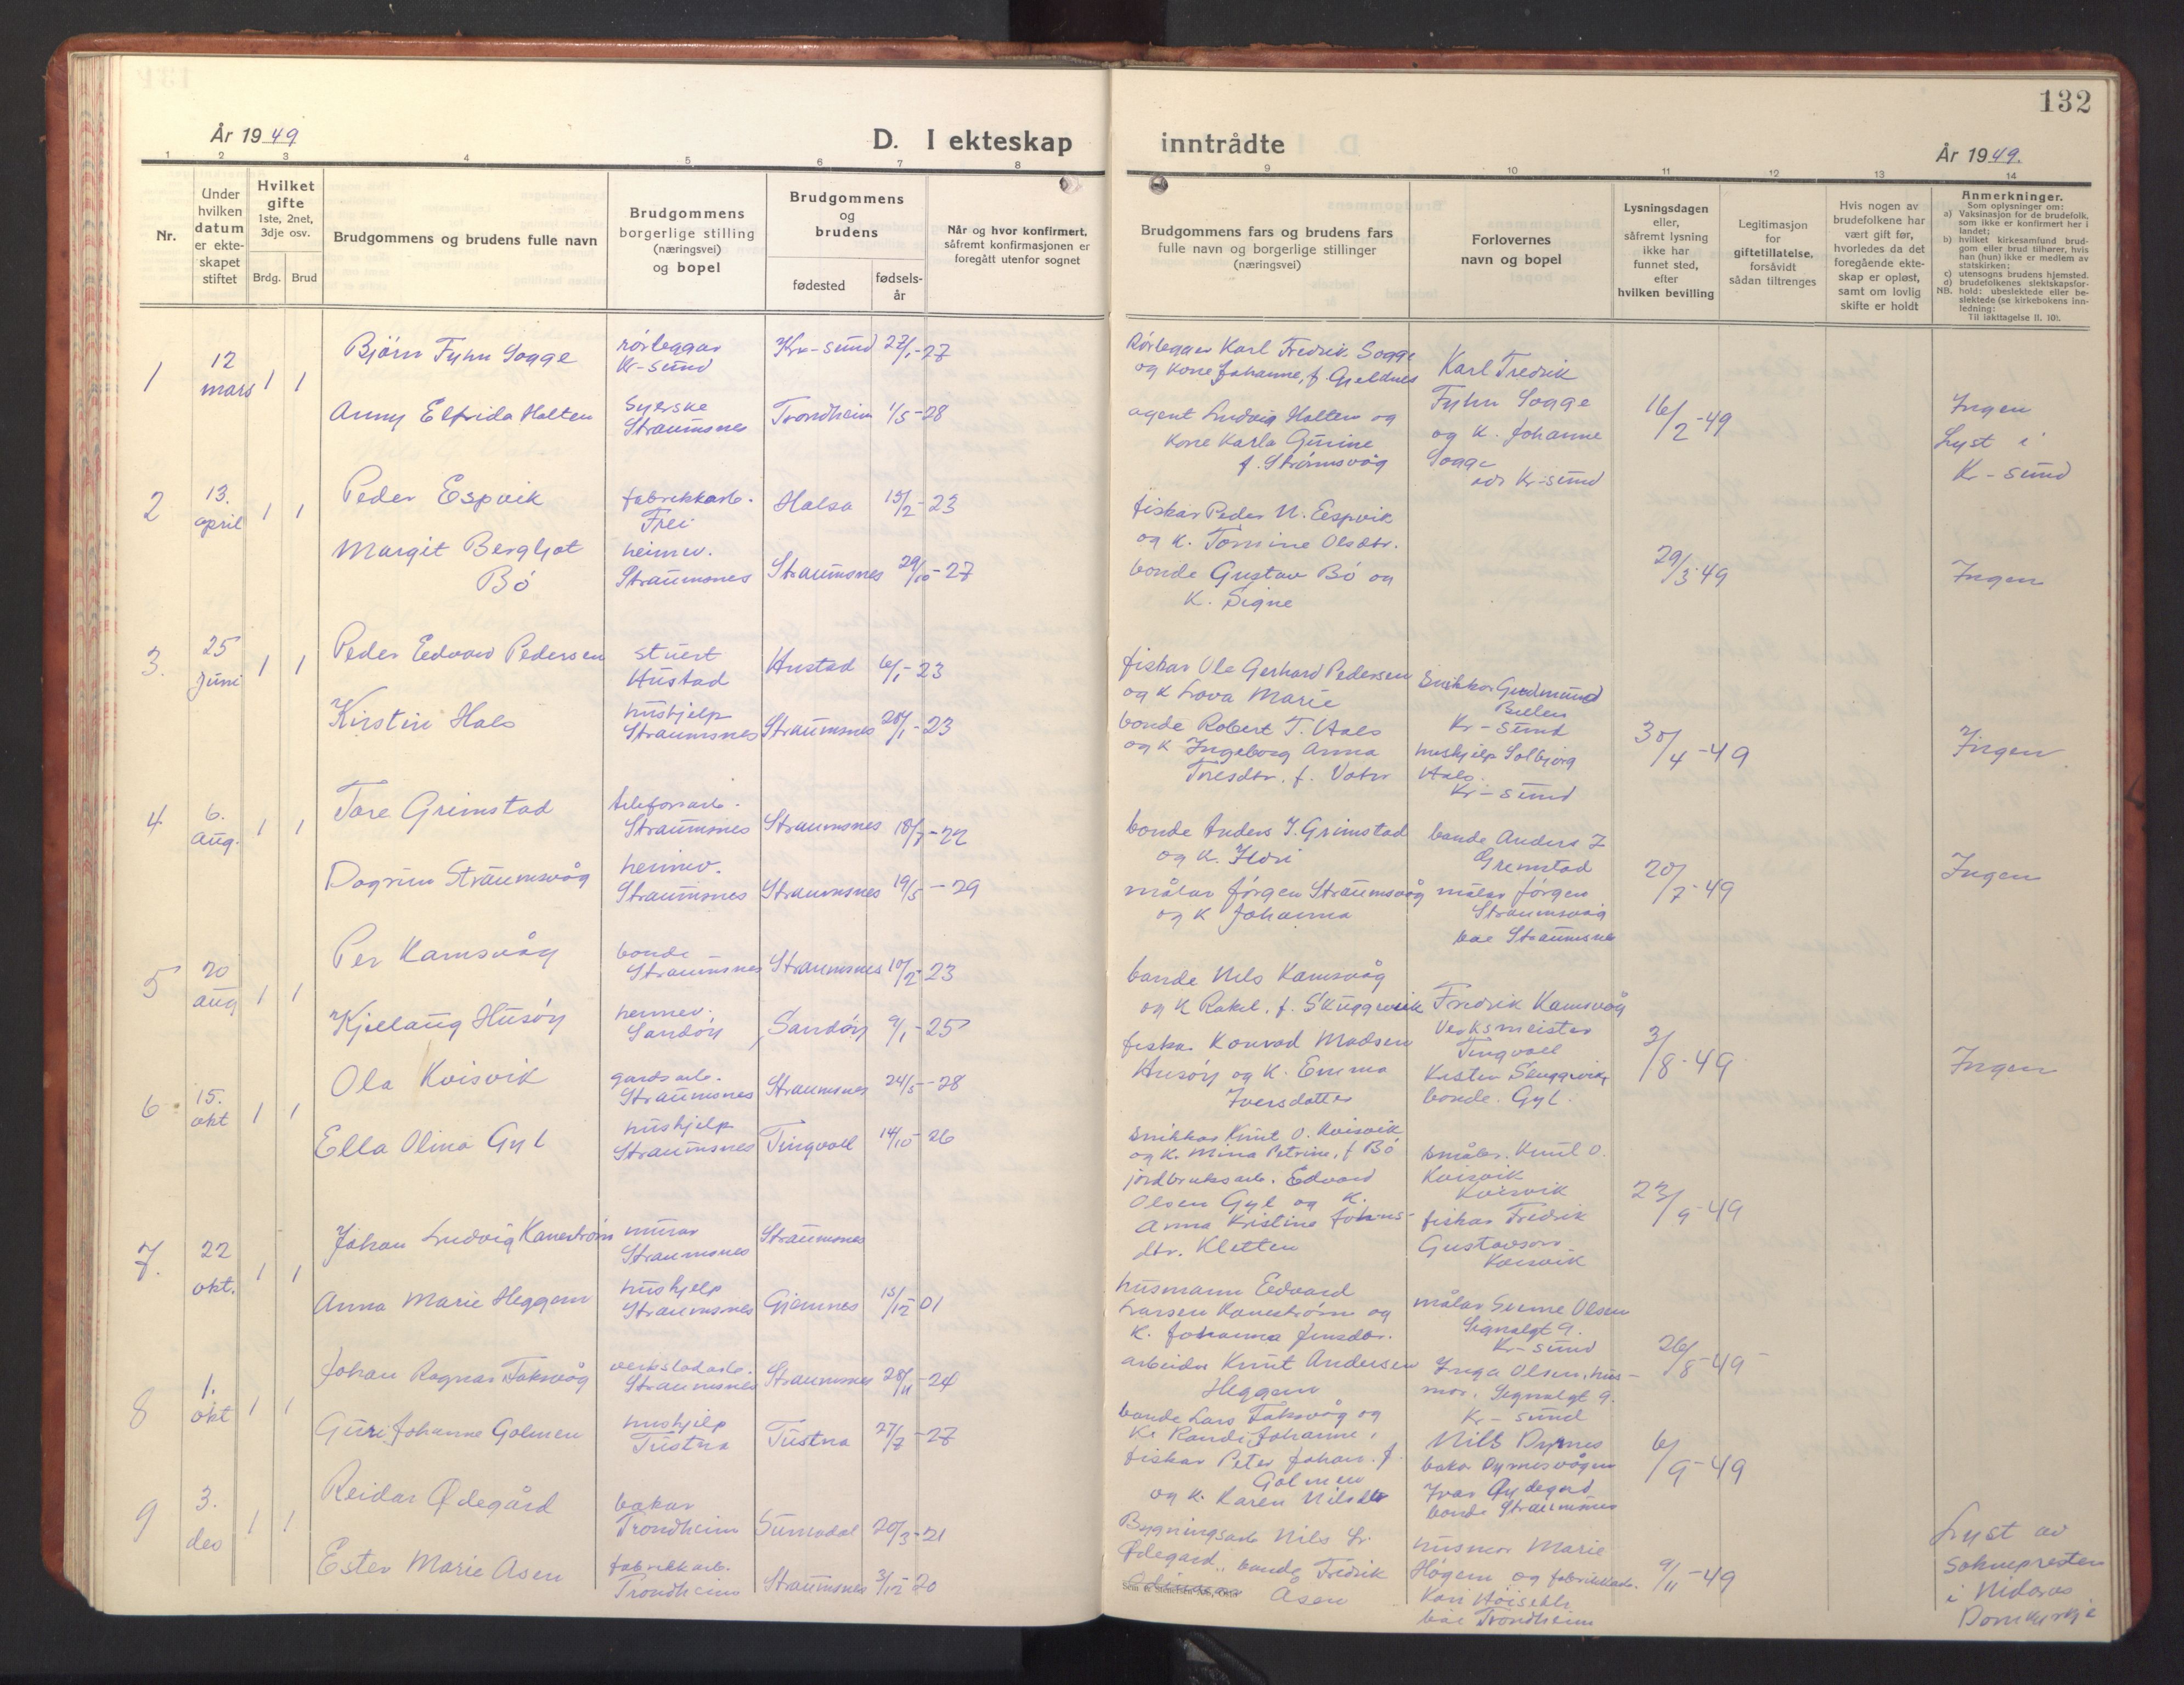 132
År 1949
D. I ekteskap inntrådte
År 1949.
1 2 3 4 5 6 7 8 9 10 11 12 13 14
Nr.
Under hvilken datum er ekte-skapet stiftet
Hvilket gifte
1ste, 2net, 3dje osv.
Brdg. Brud
Brudgommens og brudens fulle navn
Brudgommens borgerlige stilling (næringsvei) og bopel
Brudgommens og brudens
fødested
fødsels-år
Når og hvor konfirmert, såfremt konfirmasjonen er foregått utenfor sognet
Brudgommens fars og brudens fars fulle navn og borgerlige stillinger (næringsvei)
Forlovernes navn og bopel
Lysningsdagen eller, såfremt lysning ikke har funnet sted, efter hvilken bevilling
Legitimasjon for giftetillatelse, forsåvidt sådan tiltrenges
Hvis nogen av brudefolkene har vært gift før, hvorledes da det foregående ekte-skap er opløst, samt om lovlig skifte er holdt
Anmerkninger.
Som oplysninger om:
a) Vaksinasjon for de brudefolk, som ikke er konfirmert her i landet;
b) hvilket kirkesamfund brud-gom eller brud tilhører, hvis han (hun) ikke er medlem av statskirken;
c) utensogns brudens hjemsted.
d) brudefolkenes slektskapsfor-hold: ubeslektede eller be-slektede (se kirkebokens inn-ledning:
NB.
Til iakttagelse II. 10).
1
12 mars
1 1
Bjørn Fyhn Sogge
rørleggar
Kr-sund
Kr-sund 27/1-27
Anny Elfrida Halten
Syerske
Straumsnes
Trondheim 1/5-28
Rørlegger Karl Fredrik Sogge
og kone Johanne, f. Gjeldnes
agent Ludvig Halten og
kone Karla Gurine
f. Strømsvåg
Karl Fredrik
Fyhn Sogge
og K. Johanne
Sogge
adr Kr-sund
16/2-49
Ingen
Lyst i
K-sund
2
13. april
1 1
Peder Espvik
fabrikkarb.
Frei
Halsa 15/2-23
Margit Bergljot
Bö
heimev.
Straumsnes
Straumsnes 29/10-27
fiskar Peder N. Espvik
og K. Tomine Olsdtr.
bonde Gustav Bö og
K. Signe
29/3-49
Ingen
3.
25 juni
1 1
Peder Edvard Pedersen
stuert
Hustad
Hustad 6/1-23
Kirstin Hals
hushjelp
Straumsnes
Straumsnes 28/1-23
fiskar Ole Gerhard Pedersen
og K Lova Marie
bonde Robert T. Hals
og K Ingeborg Anna
Toresdtr. f. Vatn
Snikkar Gudmund
Kr-sund
hushjelp Solbjørg
Hals
Kr-sund
30/4-49
Ingen
4
6. aug.
1 1
Tore Grimstad
telefonarb.
Straumsnes
Straumsnes 18/7-22
Dagrun Straumsvåg
heimev.
Straumsnes
Straumsnes 19/5-29
bonde Anders I. Grimstad
og K. Ildri
målar Jørgen Straumsvåg
og K Johanna
bonde Anders I
Grimstad
målar Jørgen
Straumsvåg
bae Straumsnes
20/7-49
Ingen
5
20 aug
1 1
Per Kamsvåg
bonde
Straumsnes
Straumsnes 10/2-23
Kjellaug Husöy
heimev.
Sandöy
Sandöy 9/1-25
bonde Nils Kamsvåg
og K Rakel, f. Skuggevik
fiskar Konrad Madsen
Husöy og K. Emma
Iversdatter
Fredrik Kamsvåg
Verksmeister
Tingvoll
Karsten Skuggevik,
bonde. Gyl.
3/8-49
Ingen
6
15. okt
1 1
Ola Kvisvik
gardsarb.
Straumsnes
Straumsnes 24/5-28
Ella Olina Gyl
hushjelp
Straumsnes
Tingvoll 14/10-26
Snikkar Knut O. Kvisvik
og K. Mina Petrine, f Bö
jordbruksarb. Edvard
Olsen Gyl og K.
Anna Kristine Johns-
dtr. Kletten
småbr. Knut O.
Kvisvik
Kvisvik
fiskar Fredrik
Gustavsen
Kvisvik
23/9-49
7.
22 okt.
1 1
Johan Ludvig Kanestrøm
murar
Straumsnes
Straumsnes
Anna Marie Heggem
hushjelp
Straumsnes
Gjemnes 15/12 01
husmann Edvard
Larsen Kanestrøm og
K. Johanna Jensdtr.
arbeidar Knut Andersen
Heggem
målar Sverre Olsen
Signalgt 9.
Kr-sund
Inga Olsen, hus-
mor, Signalgt 9.
Kr-sund
26/8-49
8
1. okt
1 1
Johan Ragnar Taksvåg
verkstadarb.
Straumsnes
Straumsnes 28/11-24
Guri Johanne Golmen
hushjelp
Tustna
Tustna 27/7-27
bonde Lars Taksvåg og
K. Randi Johanne,
fiskar Peter Johan. J.
Golmen
og K. Karen Nilsdtr
Nils Dyrnes
bakar Dyrnesvågen
Ivar Øydegard
bonde Straumsnes
6/9-49
9
3. des
1 1
Reidar Ødegård
bakar
Trondheim
Surnadal 20/3-21
Ester Marie Asen
fabrikkarb.
Trondheim
Straumsnes 3/12-20
Bygningsarb Nils Lr.
Ødegard, bonde Fredrik
Åsen
Sem & Stenersen A/S, Oslo
husmor Marie
Høgem og fabrikkarb.
Kari
bae Trondheim
9/11-49
Lyst av
Soknepresten
i Nidaros
Domkyrkje